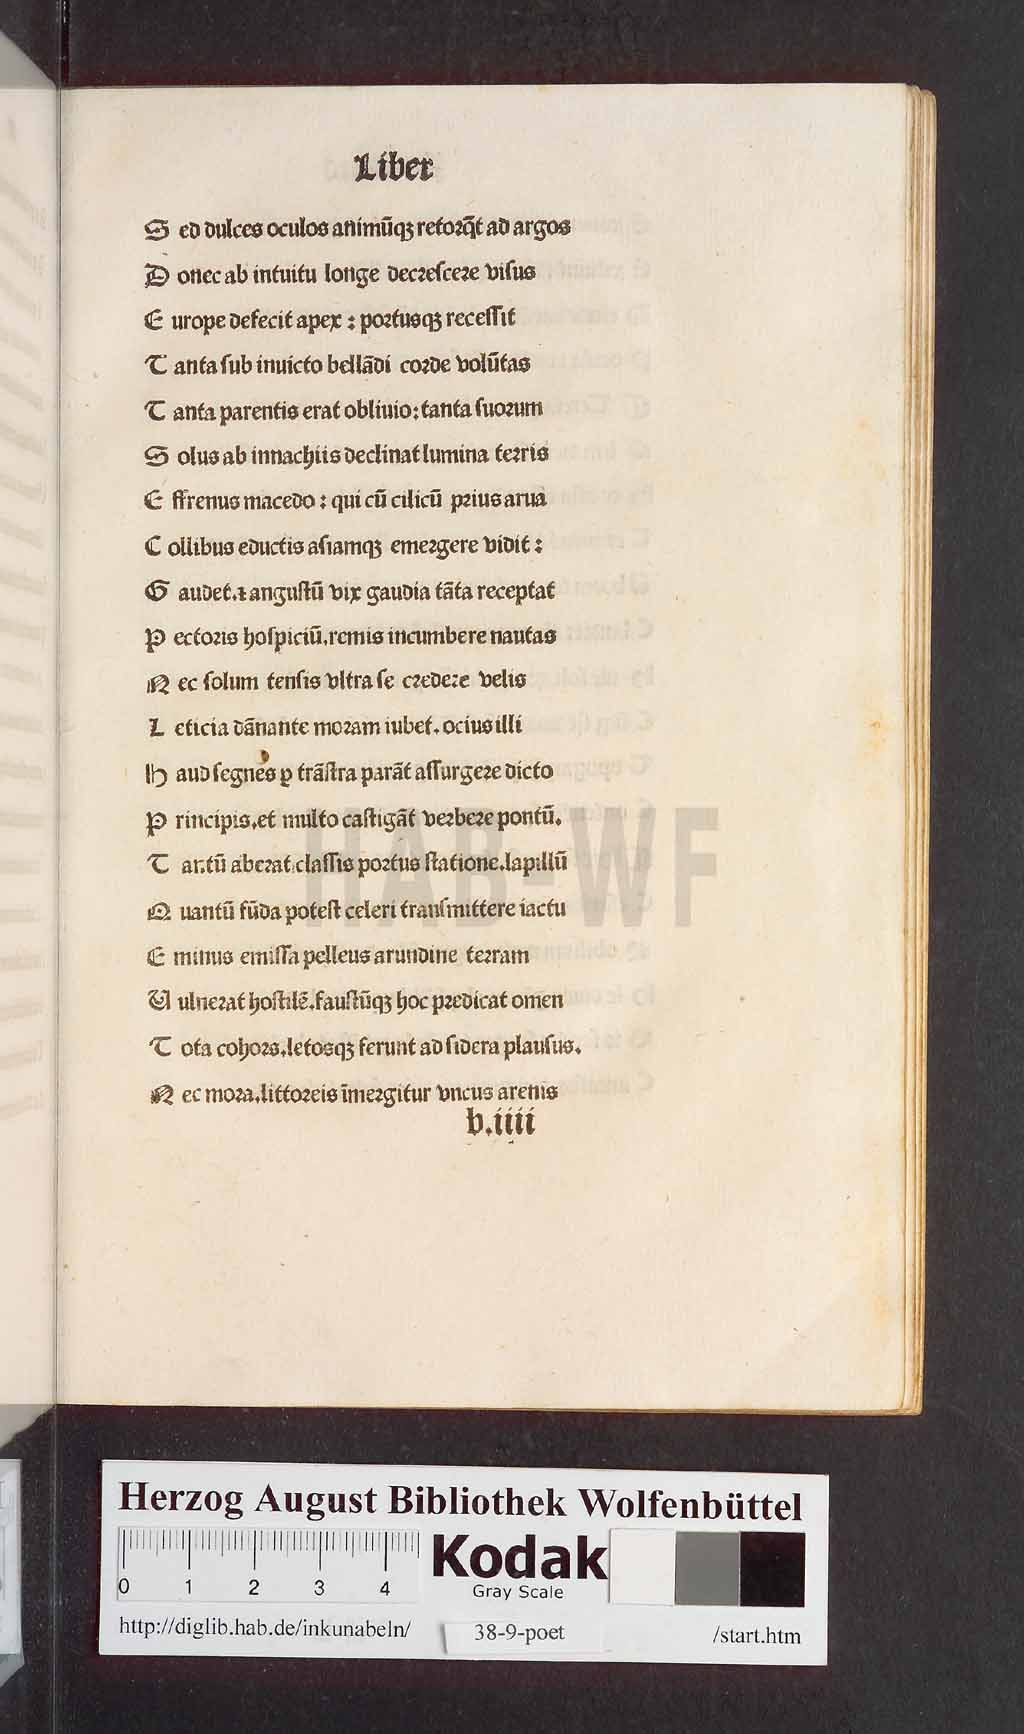 Liber
S ed dulces oculos animūqꝫ retorq̄t ad argos
D onec ab intuitu longe decrescere visus
E urope defecit apex : portusqꝫ recessit
T anta sub inuicto bellādi corde volūtas
T anta parentis erat obliuio : tanta suorum
S olus ab innachiis declinat lumina terris
E ffrenus macedo : qui cū cilicū prius arua
C ollibus eductis asiamqꝫ emergere vidit :
G audet . ⁊ angustū vix gaudia tāta receptat
P ectoris hospiciū . remis incumbere nautas
N ec solum tensis vltra se credere velis
L eticia dānante moram iubet . ocius illi
H aud segnes ꝑ trāstra parāt assurgere dicto
P rincipis . et multo castigāt verbere pontū .
T antū aberat classis portus statione . lapillū
Q uantū fūda potest celeri transmittere iactu
E minus emissa pelleus arundine terram
V ulnerat hostilē . faustūqꝫ hoc predicat omen
T ota cohors . letosqꝫ ferunt ad sidera plausus .
N ec mora . littoreis īmergitur vncus arenis
b.iiii
HAB-WF
Herzog August Bibliothek Wolfenbüttel
0 1 2 3 4
Kodak
Gray Scale
http://diglib.hab.de/inkunabeln/ 38-9-poet /start.htm